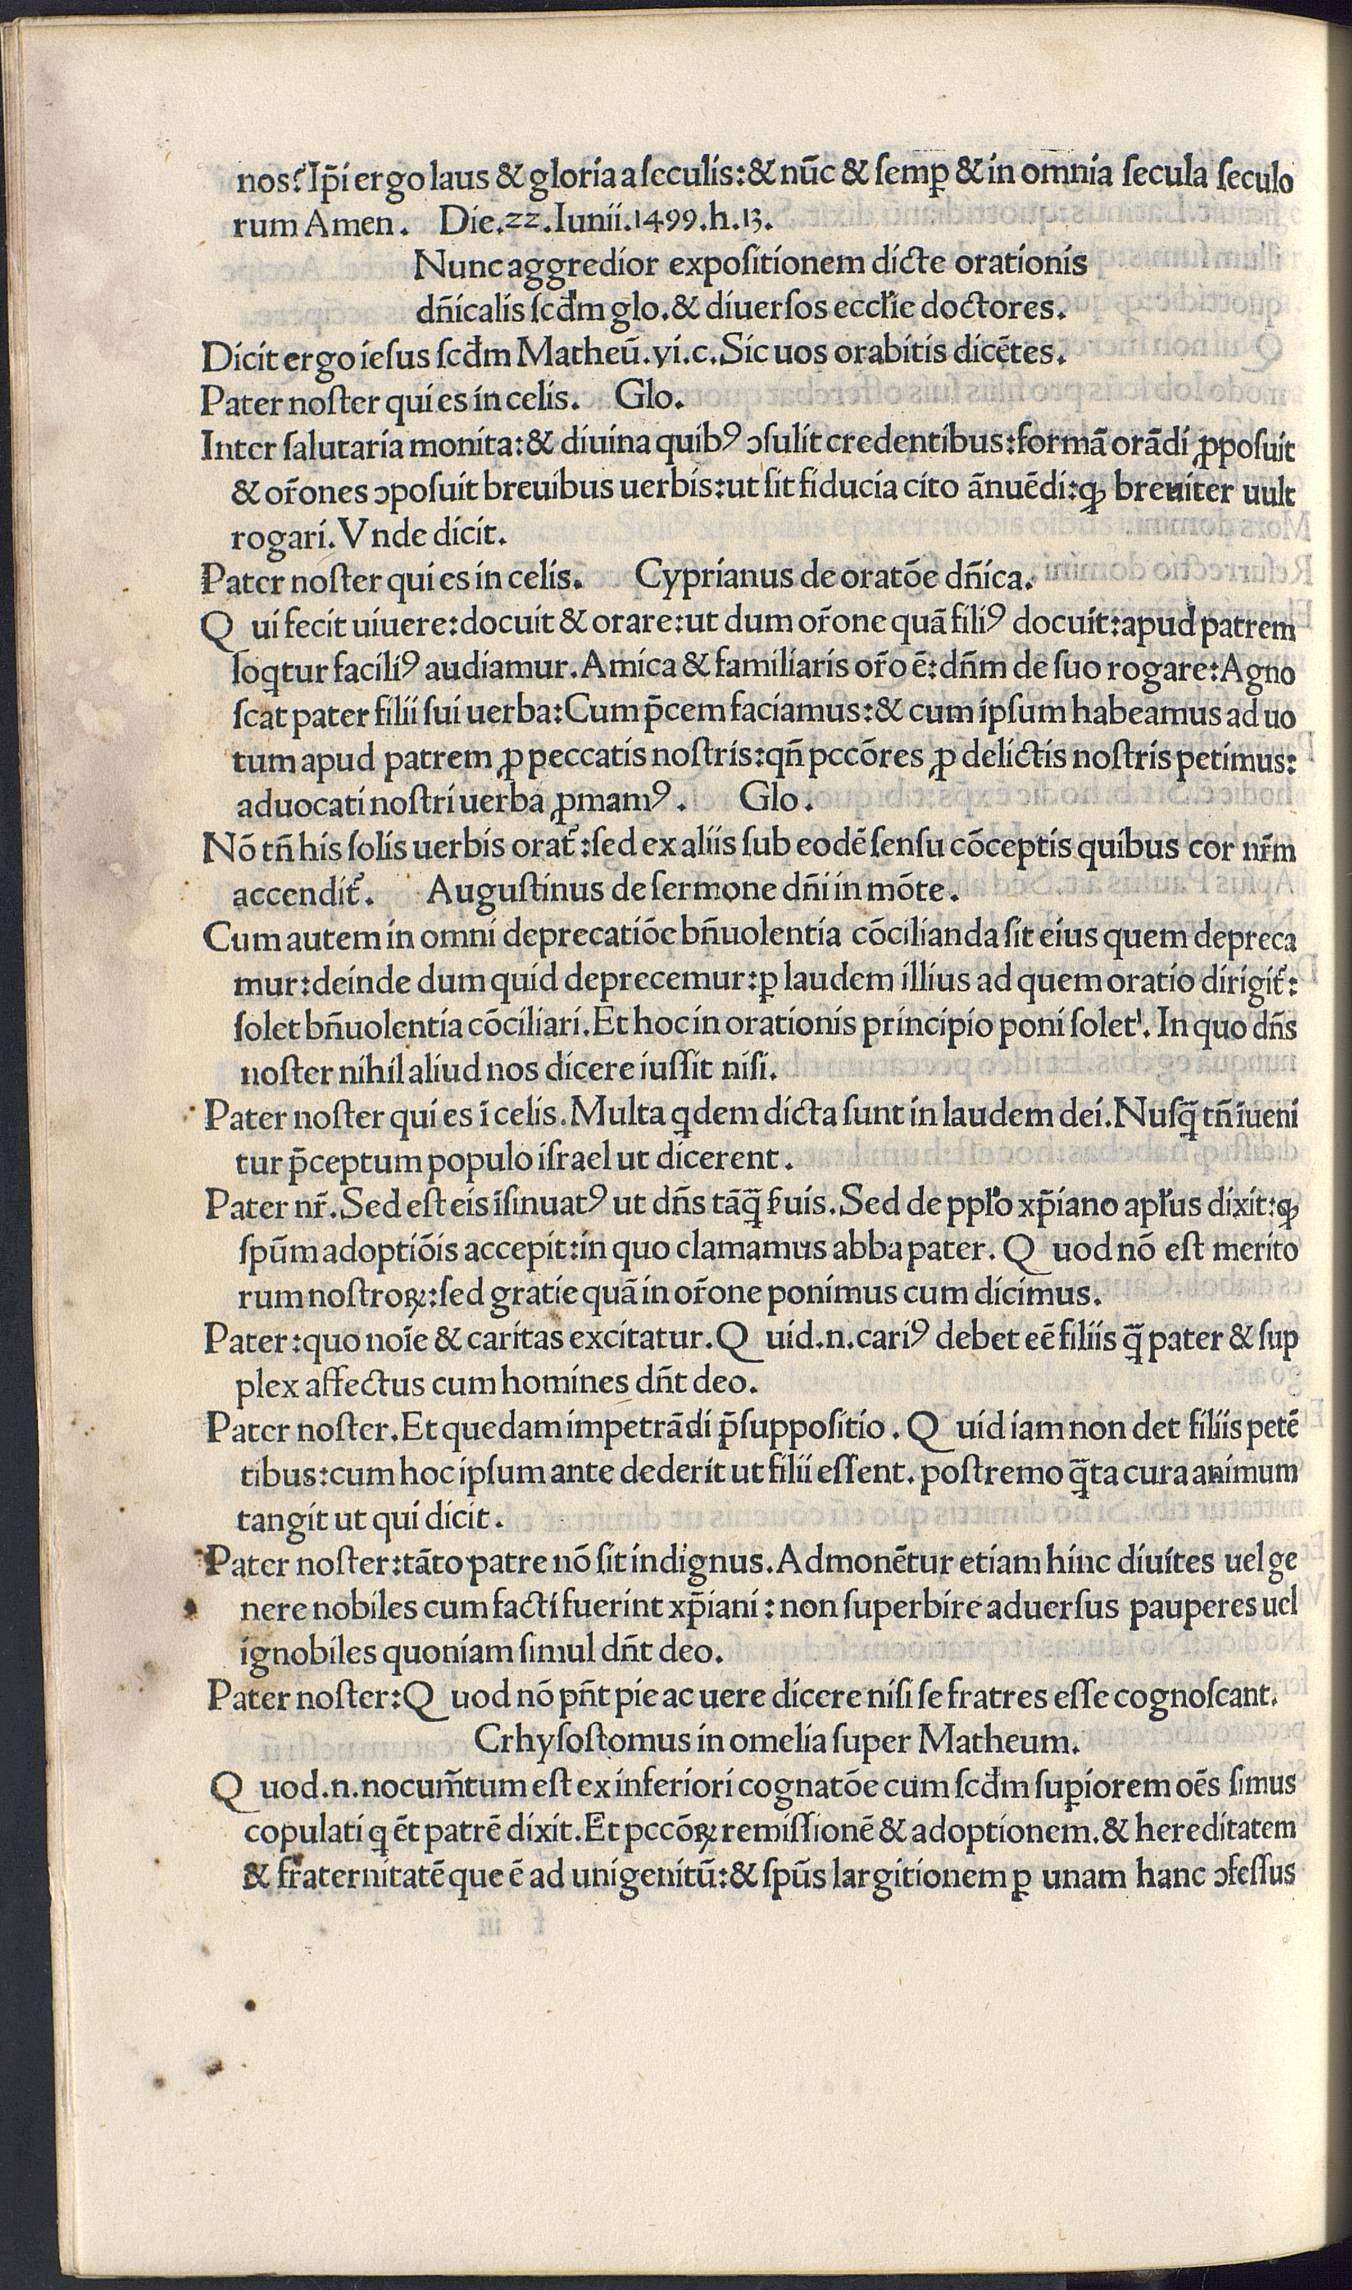 nos? Ip̄i ergo laus & gloria a ſeculis: & nūc & ſemꝑ & in omnia ſecula ſeculo
rum Amen. Die.22.Iunii.1499.h.13.
Nunc aggredior expoſitionem dicte orationis
dn̄icalis ſcd̄m glo. & diuerſos eccl̄ie doctores.
Dicit ergo ieſus ſcd̄m Matheū.vi.c.Sic uos orabitis dicētes.
Pater noſter qui es in celis. Glo.
Inter ſalutaria monita: & diuina quibꝰ ↄſulit credentibus: formā orādi ꝓpoſuit
& or̄ones ↄpoſuit breuibus uerbis: ut ſit fiducia cito ānuēdi: ꝙ breuiter uult
rogari. Vnde dicit.
Pater noſter qui es in celis. Cyprianus de oratōe dn̄ica.
Q ui fecit uiuere: docuit & orare: ut dum or̄one quā filiꝰ docuit: apud patrem
loq̄tur faciliꝰ audiamur. Amica & familiaris or̄o ē: dn̄m de ſuo rogare: Agno
ſcat pater filii ſui uerba: Cum p̄cem faciamus: & cum ipſum habeamus ad uo
tum apud patrem ꝓ peccatis noſtris: qn̄ pccōres ꝓ delictis noſtris petimus:
aduocati noſtri uerba ꝓmamꝰ. Glo.
Nō tn̄ his ſolis uerbis orat̄: ſed ex aliis ſub eodē ſenſu cōceptis quibus cor nr̄m
accendit̄. Auguſtinus de ſermone dn̄i in mōte.
Cum autem in omni deprecatiōe bn̄uolentia cōcilianda ſit eius quem depreca
mur: deinde dum quid deprecemur: ꝑ laudem illius ad quem oratio dirigit̄:
ſolet bn̄uolentia cōciliari. Et hoc in orationis principio poni ſolet'. In quo dn̄s
noſter nihil aliud nos dicere iuſſit niſi.
Pater noſter qui es ī celis. Multa q̇dem dicta ſunt in laudem dei. Nuſq̄ tn̄ īueni
tur p̄ceptum populo iſrael ut dicerent.
Pater nr̄. Sed eſt eis īſinuatꝰ ut dn̄s tāq̄ ẜuis. Sed de ppl̄o xp̄iano apl̄us dixit: ꝙ
ſpūm adoptiōis accepit: in quo clamamus abba pater. Q uod nō eſt merito
rum noſtroꝝ: ſed gratie quā in or̄one ponimus cum dicimus.
Pater: quo noīe & caritas excitatur. Q uid.n.cariꝰ debet eē filiis q̄ pater & ſup
plex affectus cum homines dn̄t deo.
Pater noſter. Et quedam impetrādi p̄ſuppoſitio. Q uid iam non det filiis petē
tibus: cum hoc ipſum ante dederit ut filii eſſent. poſtremo q̄ta cura animum
tangit ut qui dicit.
Pater noſter: tāto patre nō ſit indignus. Admonētur etiam hinc diuites uel ge
nere nobiles cum facti fuerint xp̄iani: non ſuperbire aduerſus pauperes uel
ignobiles quoniam ſimul dn̄t deo.
Pater noſter: Q uod nō pn̄t pie ac uere dicere niſi ſe fratres eſſe cognoſcant.
Crhyſoſtomus in omelia ſuper Matheum.
Q uod.n.nocum̄tum eſt ex inferiori cognatōe cum ſcd̄m ſuꝑiorem oēs ſimus
copulati q̇ ēt patrē dixit. Et pccōꝝ remiſſionē & adoptionem. & hereditatem
& fraternitatē que ē ad unigenitū: & ſpūs largitionem ꝑ unam hanc ↄfeſſus